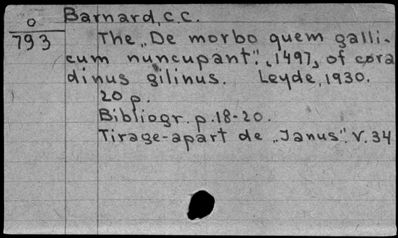 Barnard, C.C.
O
793
The „De morbo quem galli-
cum nuncupant". (1497) of cora
dinus gilinus. Leyde, 1930.
20 p.
Bibliogr. p. 18-20.
Tirage-apart de „Janus". V. 34